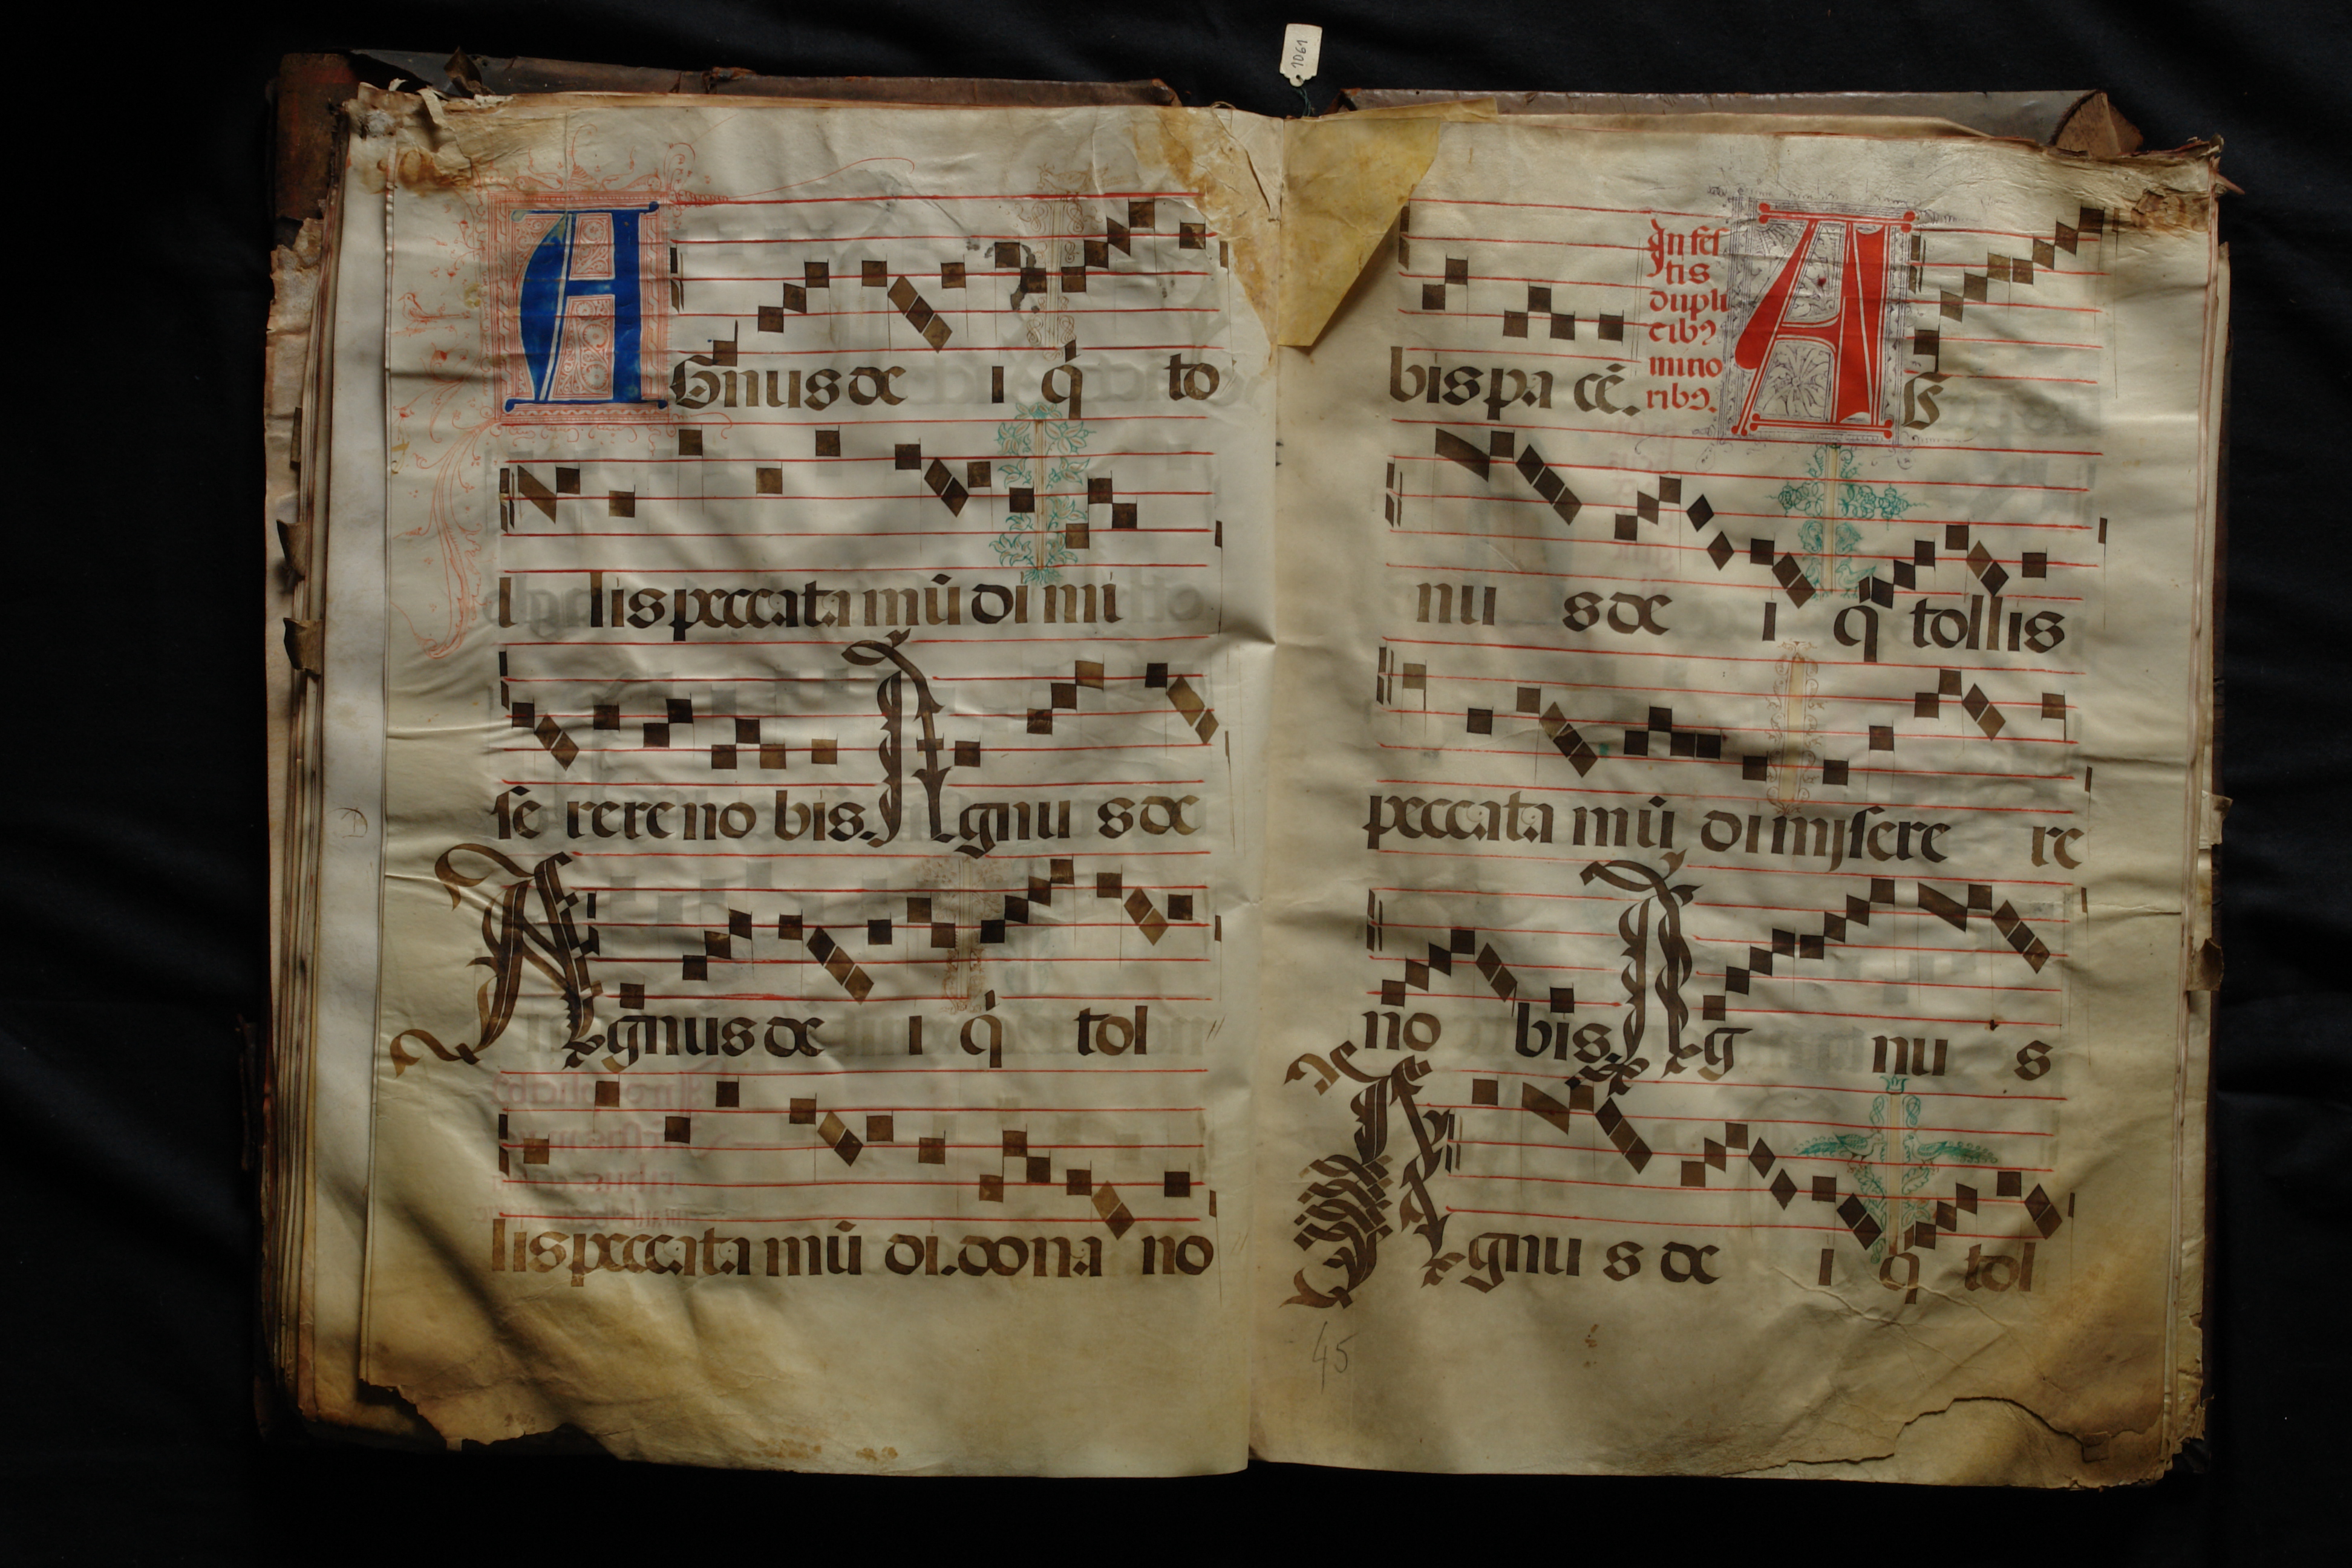 1061
AGnus de i q̇ to
l lis peccata mū di mi
se rere no bis. Agnu s de
Agnus de i q̇ tol
lis peccata mū di. dona no
bis pa cē.
In fes
tis
dupli
cibꝰ
mino
ribꝰ.
AG
nu s de i q̇ tollis
peccata mū di mjsere re
no bis. Ag nu s
Agnu s de i q̇ tol
45